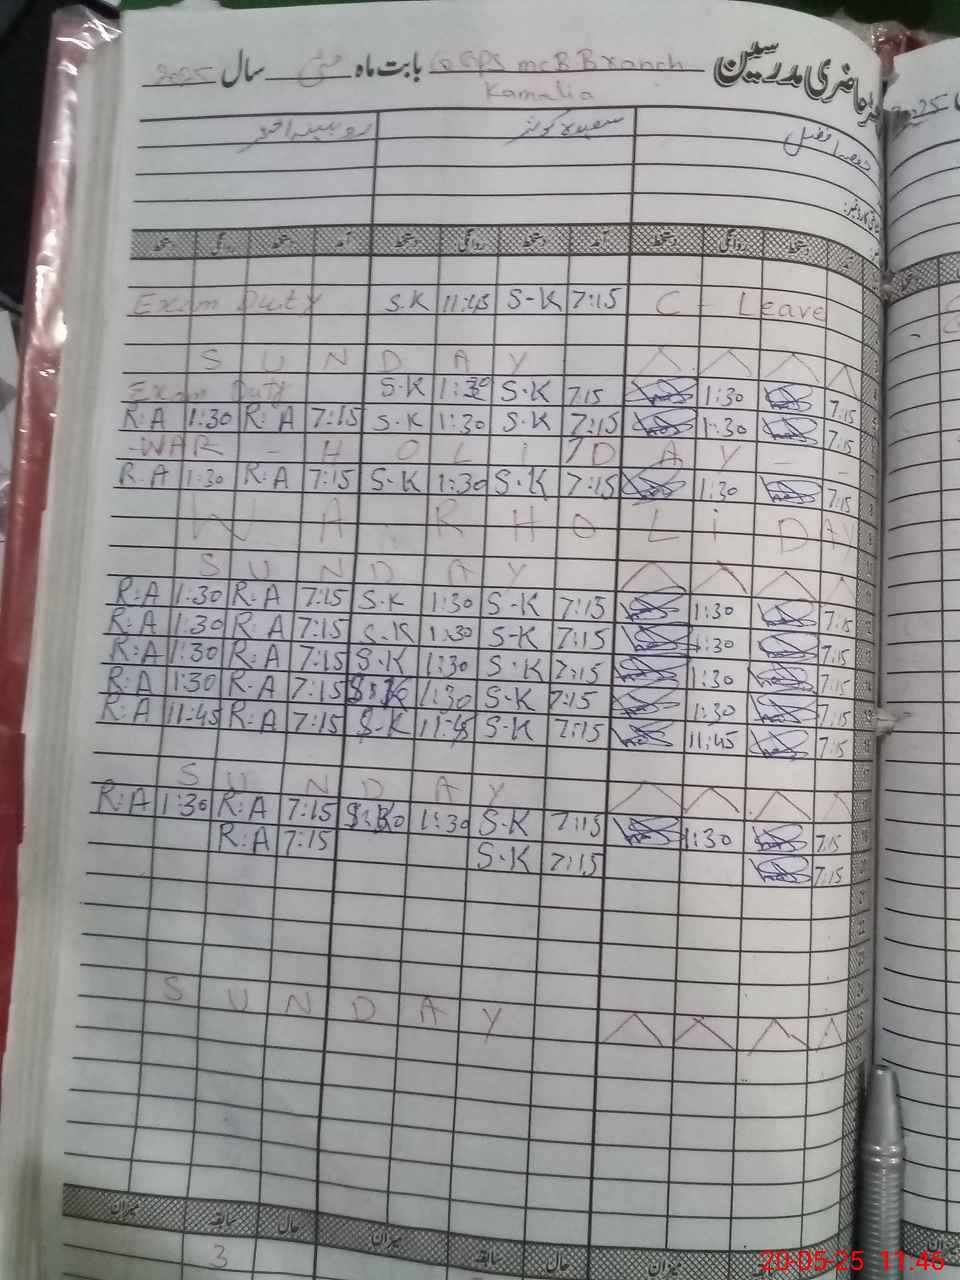 حاضری مدرسین G GPS mc B Branch بابت ماہ مئی سال 2025
Kamalia
2025
سعیدہ کوثر روبینہ اختر
آمد دستخط روانگی دستخط آمد دستخط روانگی دستخط دستخط روانگی دستخط
Exam Duty S.K 11:45 S-K 7:15 C - Leave
S U N D A Y
Exam Duty S.K 1:30 S-K 7:15 1:30 7:15
R:A 1:30 R:A 7:15 S.K 1:30 S-K 7:15 1:30 7:15
-WAR - H O L i D A Y - -
R.A 1:30 R:A 7:15 S.K 1:30 S.K 7:15 1:30 7:15
W A R H O L i D AY
S U N D A Y
R:A 1:30 R:A 7:15 S.K 1:30 S-K 7:15 1:30 7:15
R:A 1:30 R:A 7:15 S.K 1:30 S-K 7:15 1:30 7:15
R:A 1:30 R:A 7:15 S.K 1:30 S.K 7:15 1:30 7:15
R:A 1:30 R.A 7:15 1:30 S.K 7:15 1:30 7:15
R:A 11:45 R:A 7:15 S-K 11:45 S-K 7:15 11:45 7:15
S U N D A Y
R:A 1:30 R:A 7:15 1:30 S-K 7:15 1:30 7:15
R:A 7:15 S-K 7:15 7:15
S U N D A Y
میزان سابقہ حال میزان سابقہ حال
3
20-05-25 11:46